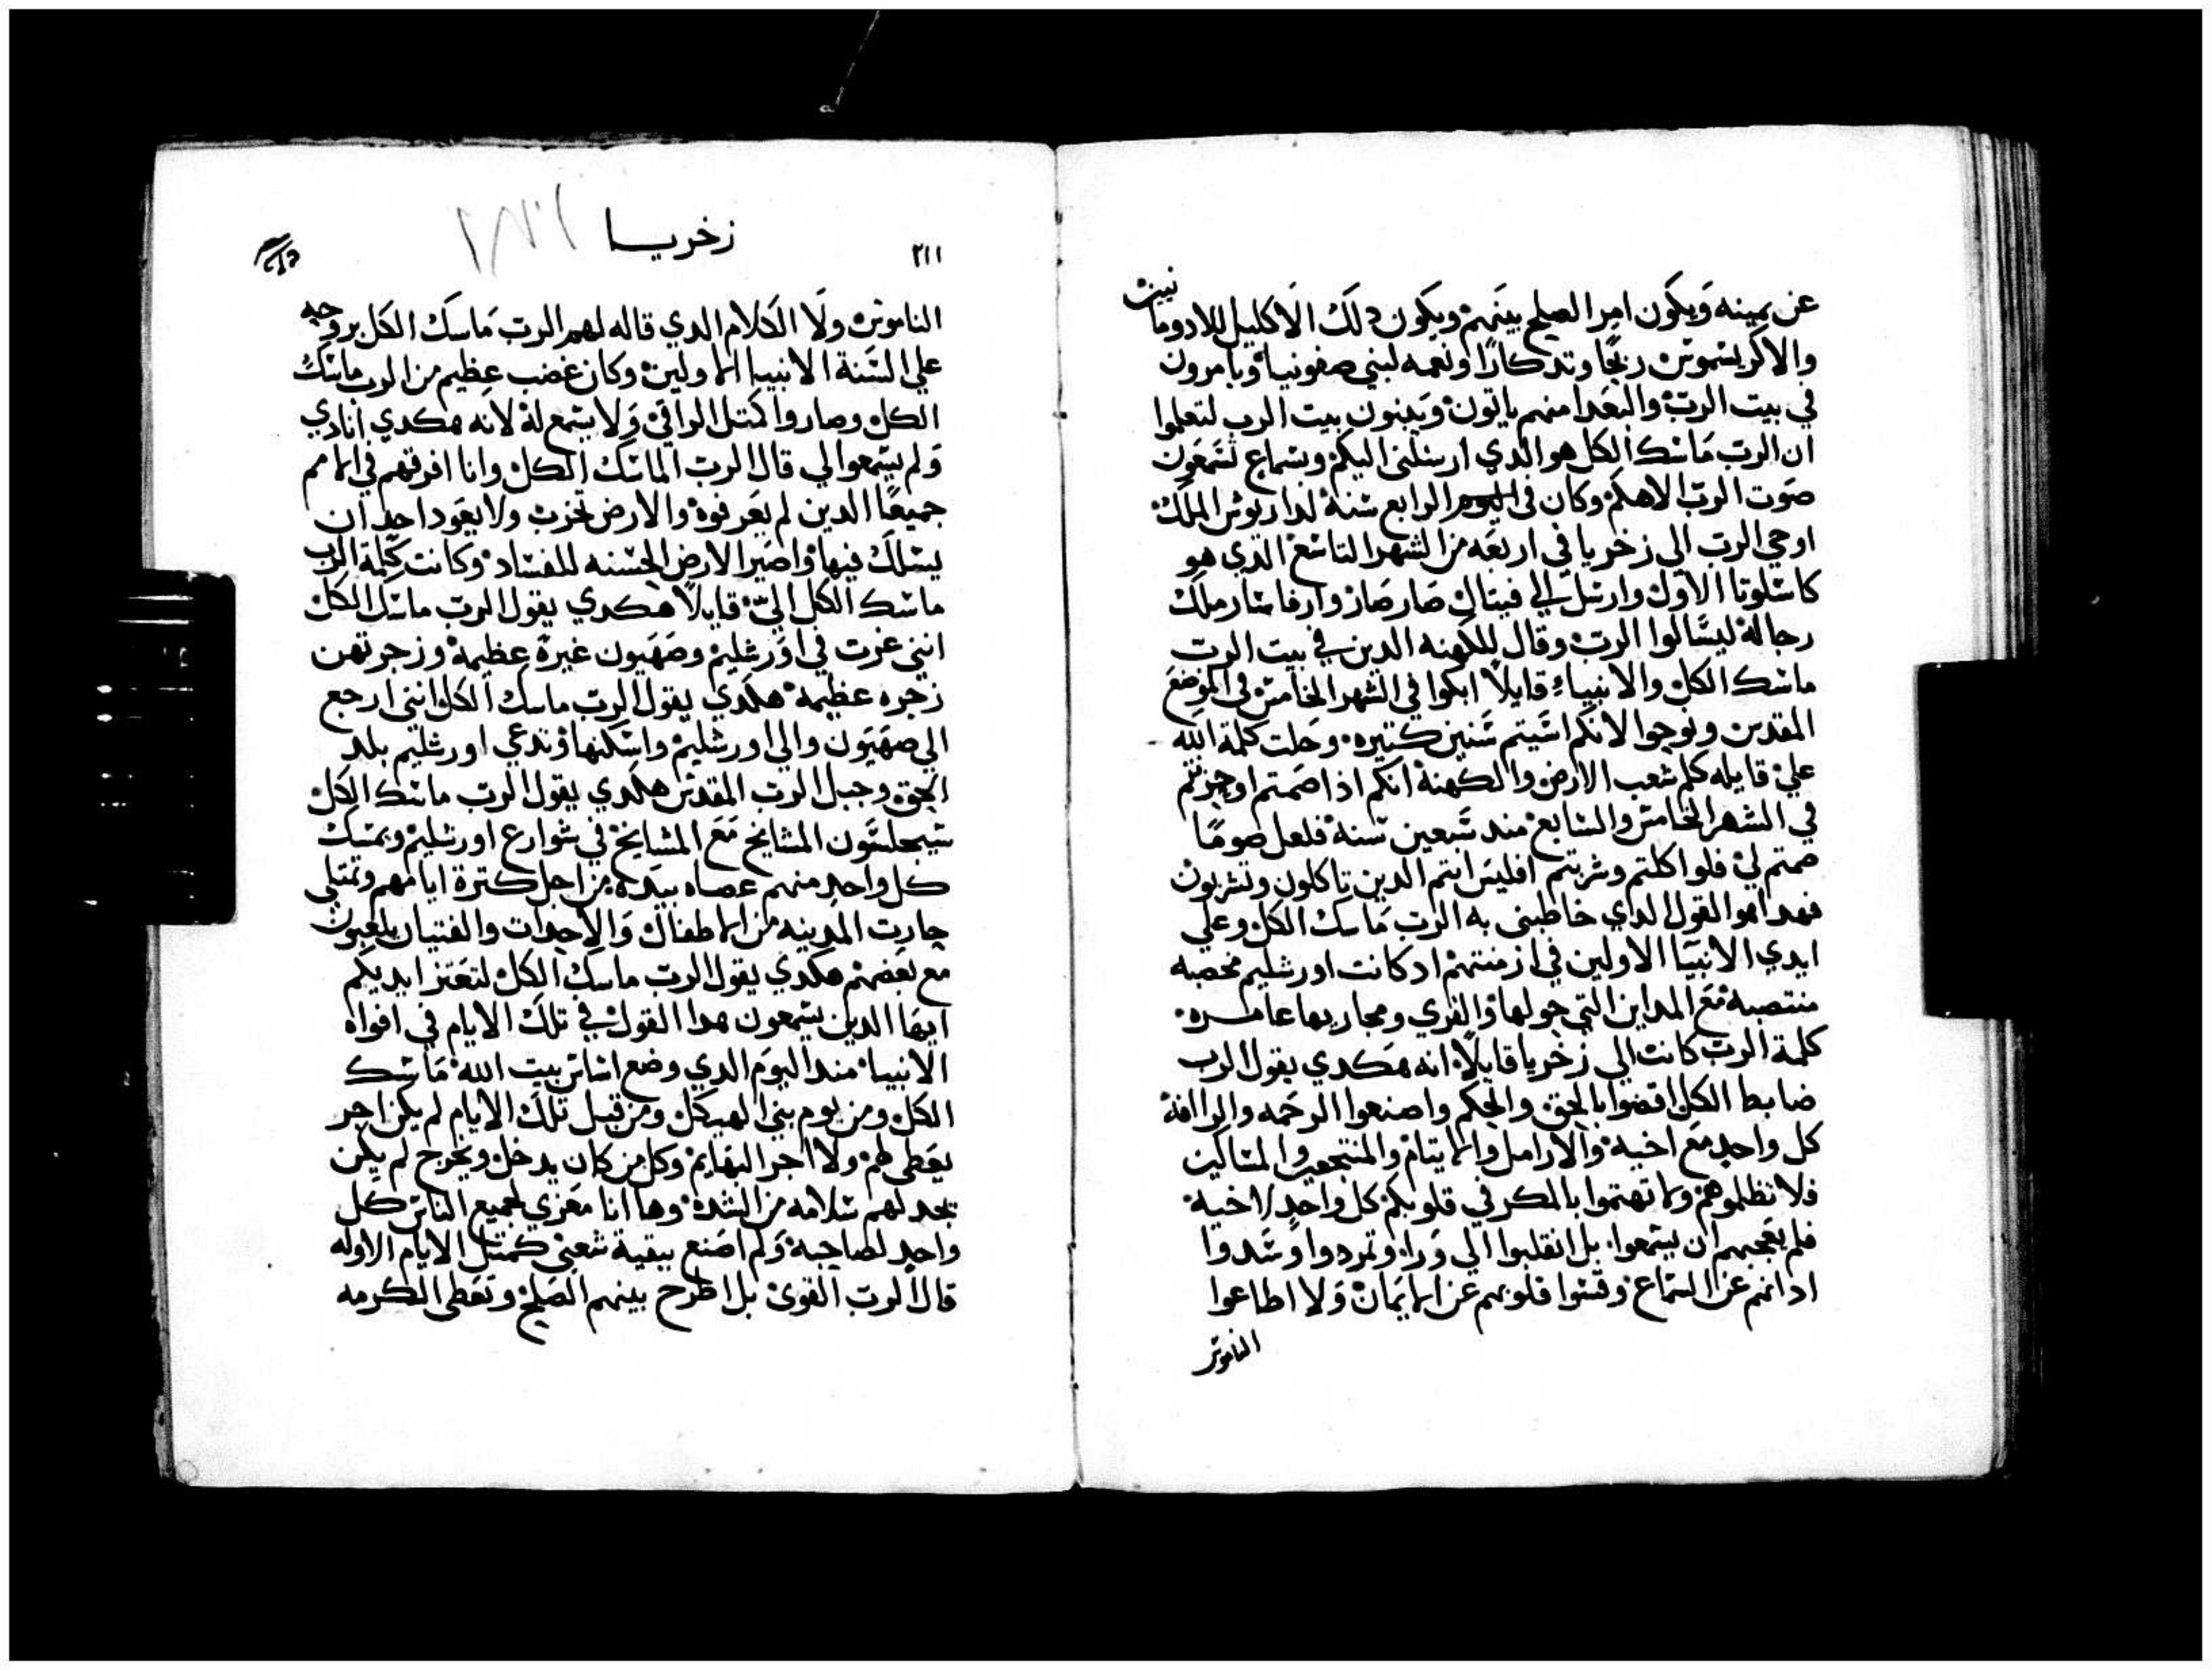 عن يمينه ويكون امر الصلح بينهم ويكون دلك الاكليل للادومانيين
والاكريسموس ربحًا وتدكارًا ونعمه لبني صفونيا ويامرون
في بيت الرب والبعدا منهم ياتون ويبنون بيت الرب لتعلموا
ان الرب ماسك الكل هو الدي ارسلني اليكم وسماع تسمعون
صوت الرب الاهكم وكان في الرابع سنة لداريوش الملك
اوحي الرب الي زخريا في اربعه من الشهر التاسع الدي هو
كاسلوتا الاول وارسل الي فيتال صارصار وارفاسار ملك
رجاله ليسالوا الرب وقال للكهنه الدين في بيت الرب
ماسك الكل والانبياء قايلاً ابكوا في الشهر الخامس في الموضع
المقدس ونوحوا لانكم اشيتم سنين كتيره وحلت كلمة الله
علي قايله كلم شعب الارض والكهنة انكم اذا صمتم اوحزنتم
في الشهر الخامس والسابع مند سبعين سنة فلعل صومًا
صمتم لي فلو اكلتم وشربتم افليس انتم الدين تاكلون وتشربون
فهدا هو القول الدي خاطبني به الرب ماسك الكل وعلي
ايدي الانبيا الاولين في ازمنتهم اد كانت اورشليم مخصبه
منتصبة مع المداين التي حولها والقري ومجاريها عامره
كلمة الرب كانت الي زخريا قايلاً انه هكدي يقول الرب
ضابط الكل اقضوا بالحق والحكم واصنعوا الرحمه والراافة
كل واحد مع اخيه والارامل والايتام والمنتجعين والمساكين
فلا تظلموهم ولا تهتموا بالمكر في قلوبكم كل واحد لاخيه
فلم يعجبهم ان يسمعوا بل انقلبوا الي ورا وتمردوا وسدوا
ادانهم عن السماع وقسوا قلوبهم عن الايمان ولا اطاعوا
الناموس
٢١١
زخريا
الناموس ولا الكلام الدي قاله لهم الرب ماسك الكل بروحه
علي السنة الانبيا الاولين وكان غضب عظيم من الرب ماسك
الكل وصاروا كمتل الراقي ولا يسمع له لانه هكدي انادي
ولم يسمعوا لي قال الرب الماسك الكل وانا افرقهم في الامم
جميعًا الدين لم يعرفوه والارض تخرب ولا يعود احد ان
يسلك فيها واصير الارض الحسنه للفساد وكانت كلمة الرب
ماسك الكل الي قايلاً هكدي يقول الرب ماسك الكل
انني غرت في اورشليم وصهيون غيرة عظيمة وزجرتهن
زجره عظيمه هكدي يقول الرب ماسك الكل انني ارجع
الي صهيون والي اورشليم واسكنها وتدعي اورشليم بلد
الحق وجبل الرب المقدس هكدي يقول الرب ماسك الكل
سيجلسون المشايخ مع المشايخ في شوارع اورشليم ويمسك
كل واحد منهم عصاه بيده من اجل كترة ايامهم وتمتلي
حارت المدينه من الاطفال والاحدات والفتيان يلعبون
مع بعضهم هكدي يقول الرب ماسك الكل لتعتز ايديكم
ايها الدين يسمعون هدا القول في تلك الايام في افواه
الانبيا مند اليوم الدي وضع اساس بيت الله ماسك
الكل ومن يوم بني الهيكل ومن قبل تلك الايام لم يكن اجر
يعطي لهم ولا اجر البهايم وكل من كان يدخل ويخرج لم يكن
يجد لهم سلامه من الشده وها انا مغري لجميع الناس كل
واحد لصاحبه ولم اصنع ببقية شعبي كمتل الايام الاوله
قال الرب القوي بل اطرح بينهم الصلح وتعطي الكرمه